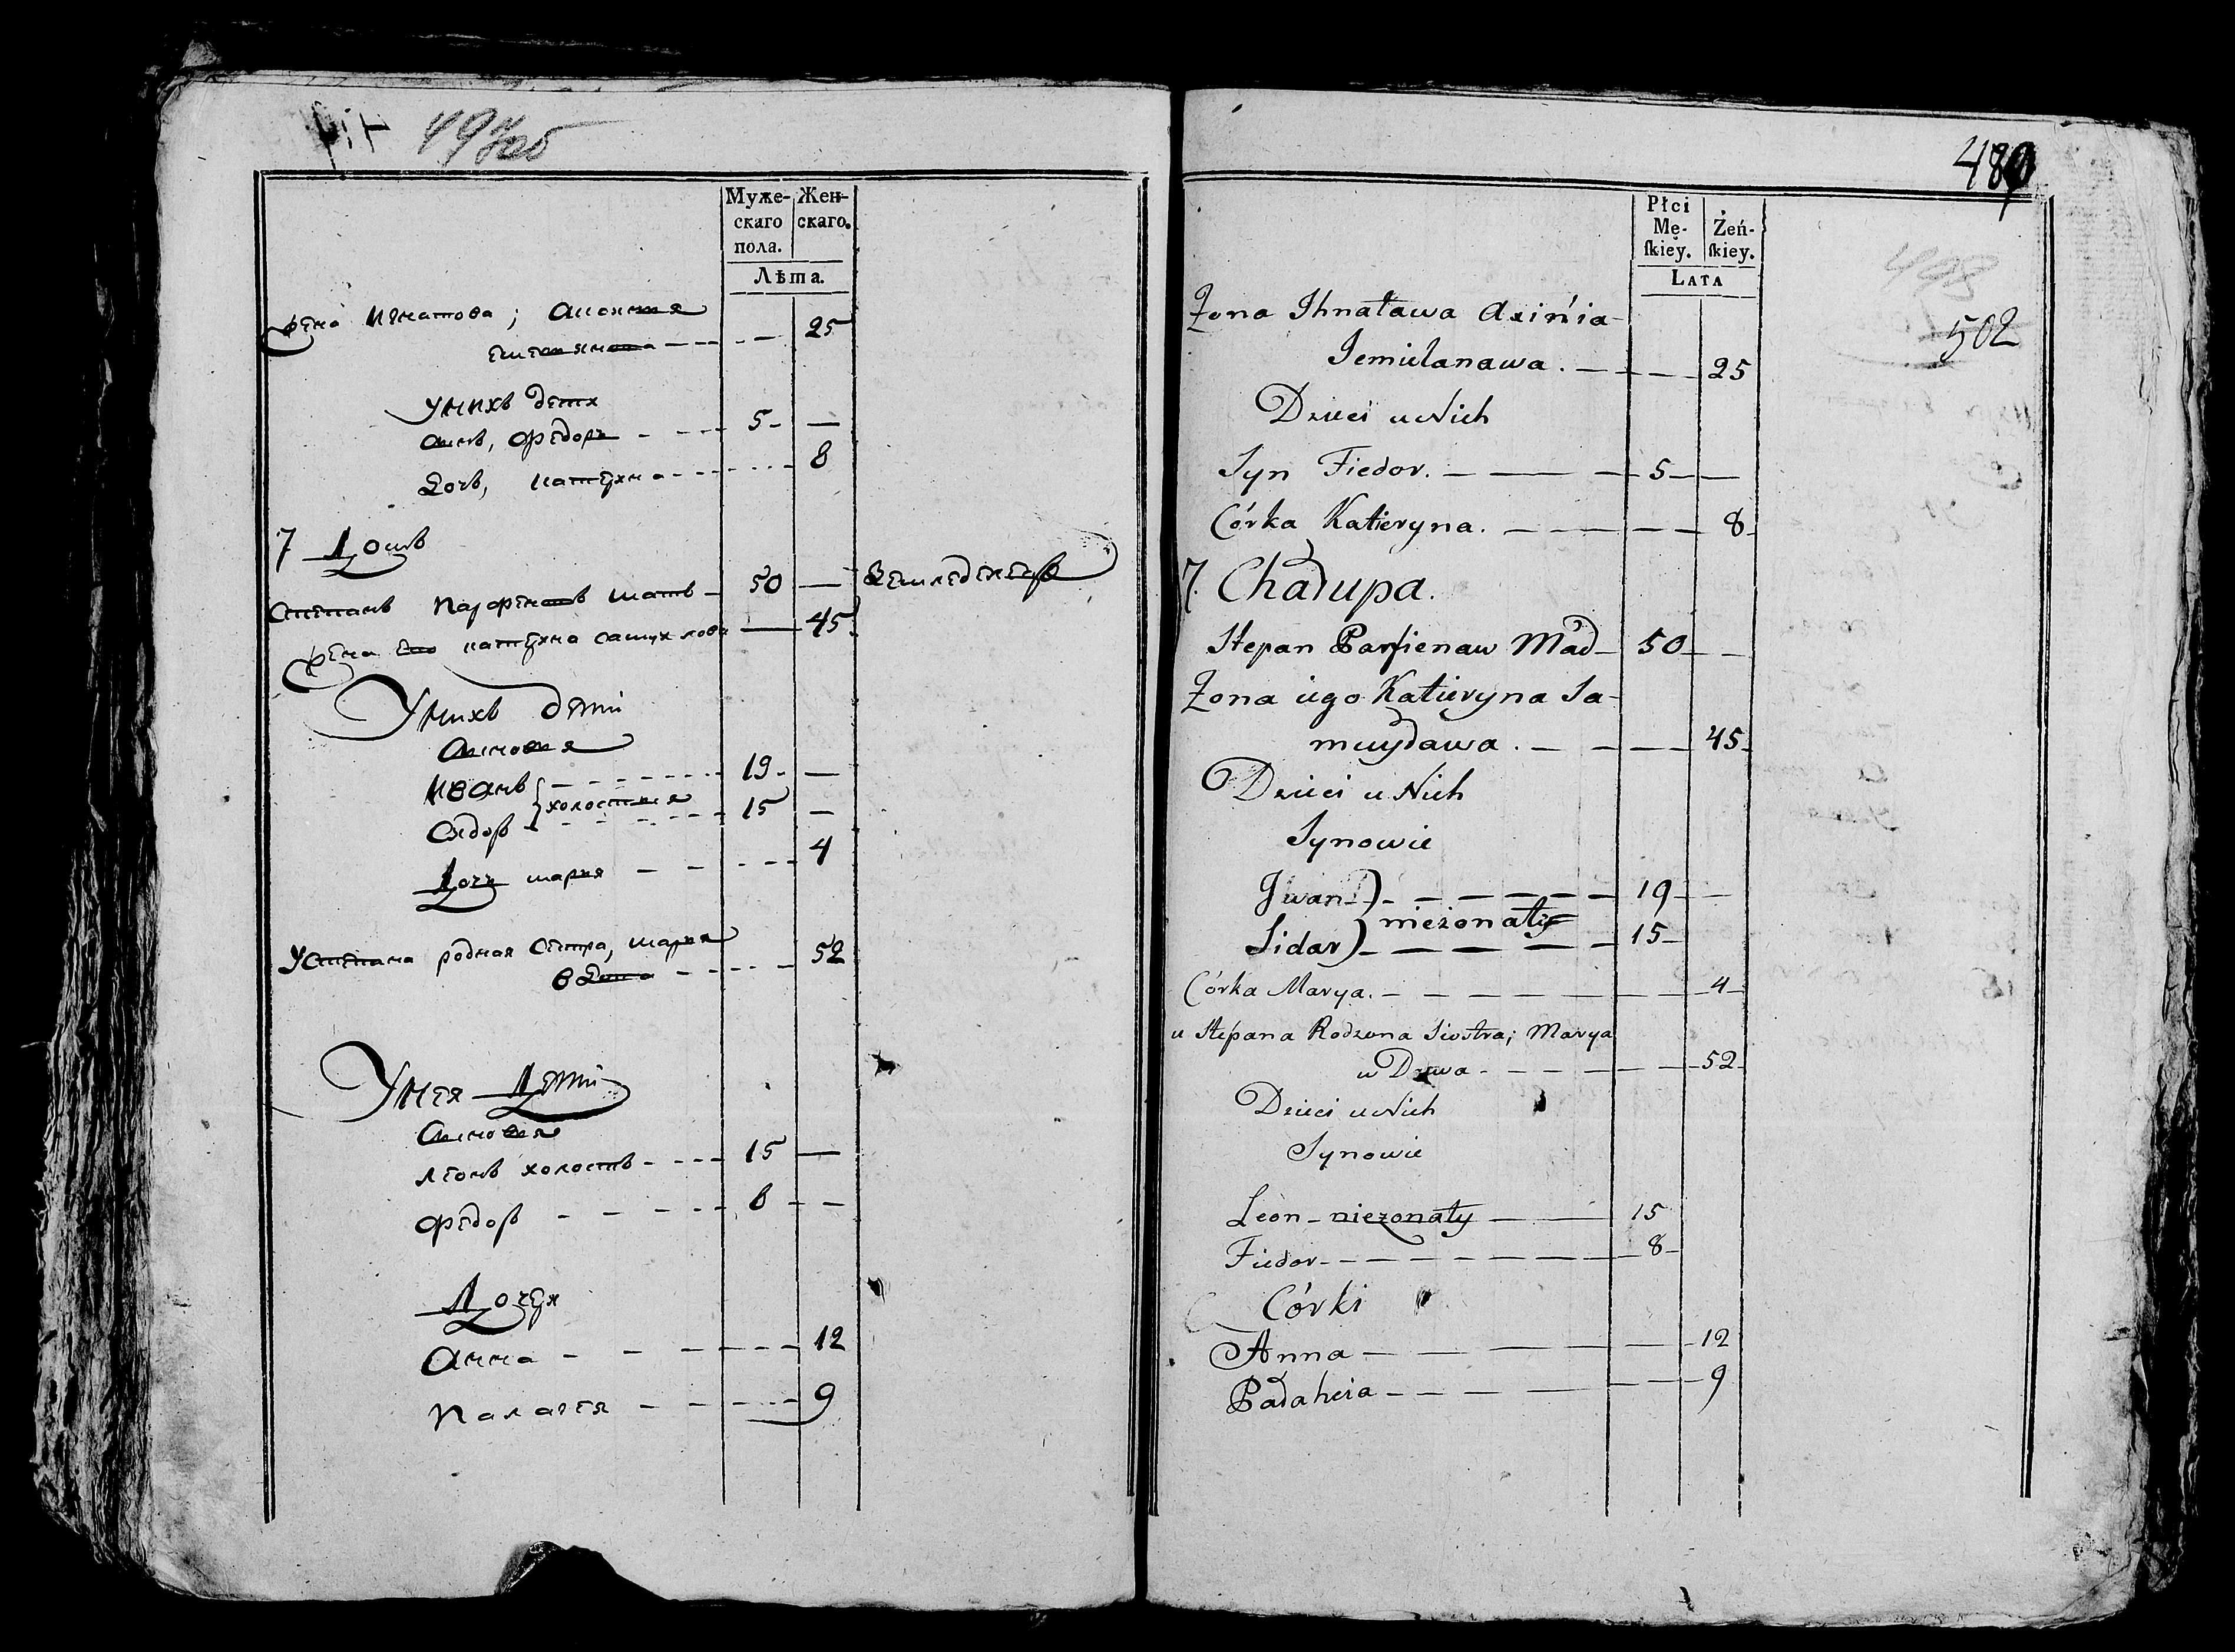 Муже-
скаго
пола.
Жен-
скаго.
Лѣта.
жена Игнатова;
25
Унихъ дети
Сынъ, Федоръ 5
Дочь, Катерина 8
7 Домъ
Степанъ Парфеновъ 50
жена его Катерина Самуилова 45
Унихъ дети
Сыновья
Иванъ 19
холостыя
Сидоръ 15
Дочь Мария 4
Устепана родная сестра, Мария
вдова 52
Унея Дети
Сыновья
Леонъ холостъ 15
Федоръ 8
Дочери
Анна 12
Палагея 9
480
498
502
Płci
Mę-
ſkiey.
Żeń-
ſkiey.
LATA
Żona Ihnatawa Axińia
Jemielanawa. 25
Dzieci u Nich
Syn Fiedor. 5
Córka Katieryna. 8
7. Chałupa.
Stepan Parfienaw 50
Żona iego Katieryna Sa-
muyława. 45
Dzieci u Nich
Synowie
Jwan 19
nieżonaty
Sidar 15
Córka Marya. 4
u Stepana Rodzona Siostra; Marya
wDowa 52
Dzieci u Nich
Synowie
Leon nieżonaty 15
Fiedor 8
Córki
Anna 12
Pałaheia 9